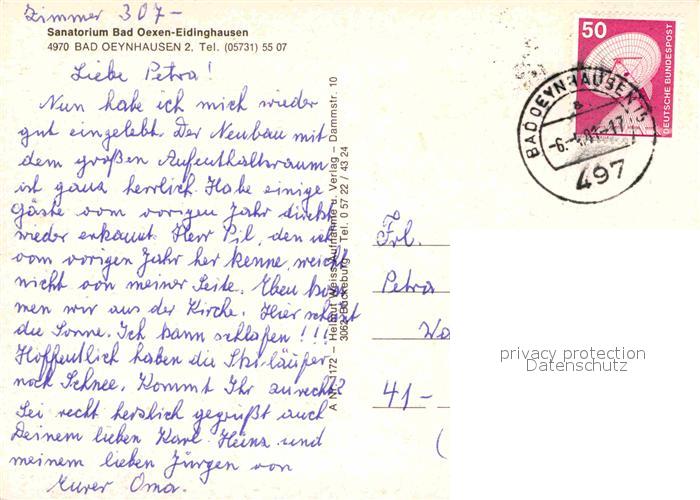 Zimmer 307-
Sanatorium Bad Oexen-Eidinghausen
4970 BAD OEYNHAUSEN 2, Tel. (05731) 55 07
Liebe Petra!
Nun habe ich mich wieder
gut eingelebt. Der Neubau mit
dem großen Aufenthaltsraum
ist ganz herrlich. Habe einige
Gäste vom vorigen Jahr direkt
wieder erkannt. Herr Pil, den ich
vom vorigen Jahr her kenne, weicht
nicht von meiner Seite. Eben kom
men wir aus der Kirche. Hier scheint
die Sonne. Ich kann schlafen!!!
Hoffentlich haben die Ski-läufer
noch Schnee. Kommt Ihr zurecht??
Sei recht herzlich gegrüßt auch
Deinem lieben Karl-Heinz und
meinem lieben Jürgen von
Eurer Oma.
A Nr. 1172 – Helmut Weiss, Aufnahme u. Verlag – Dammstr. 10
3062 Bückeburg Tel. 0 57 22 / 43 24
50
DEUTSCHE BUNDESPOST
BAD OEYNHAUSEN 1
a
497
Frl.
Petra
Wo
41-
(
privacy protection
Datenschutz